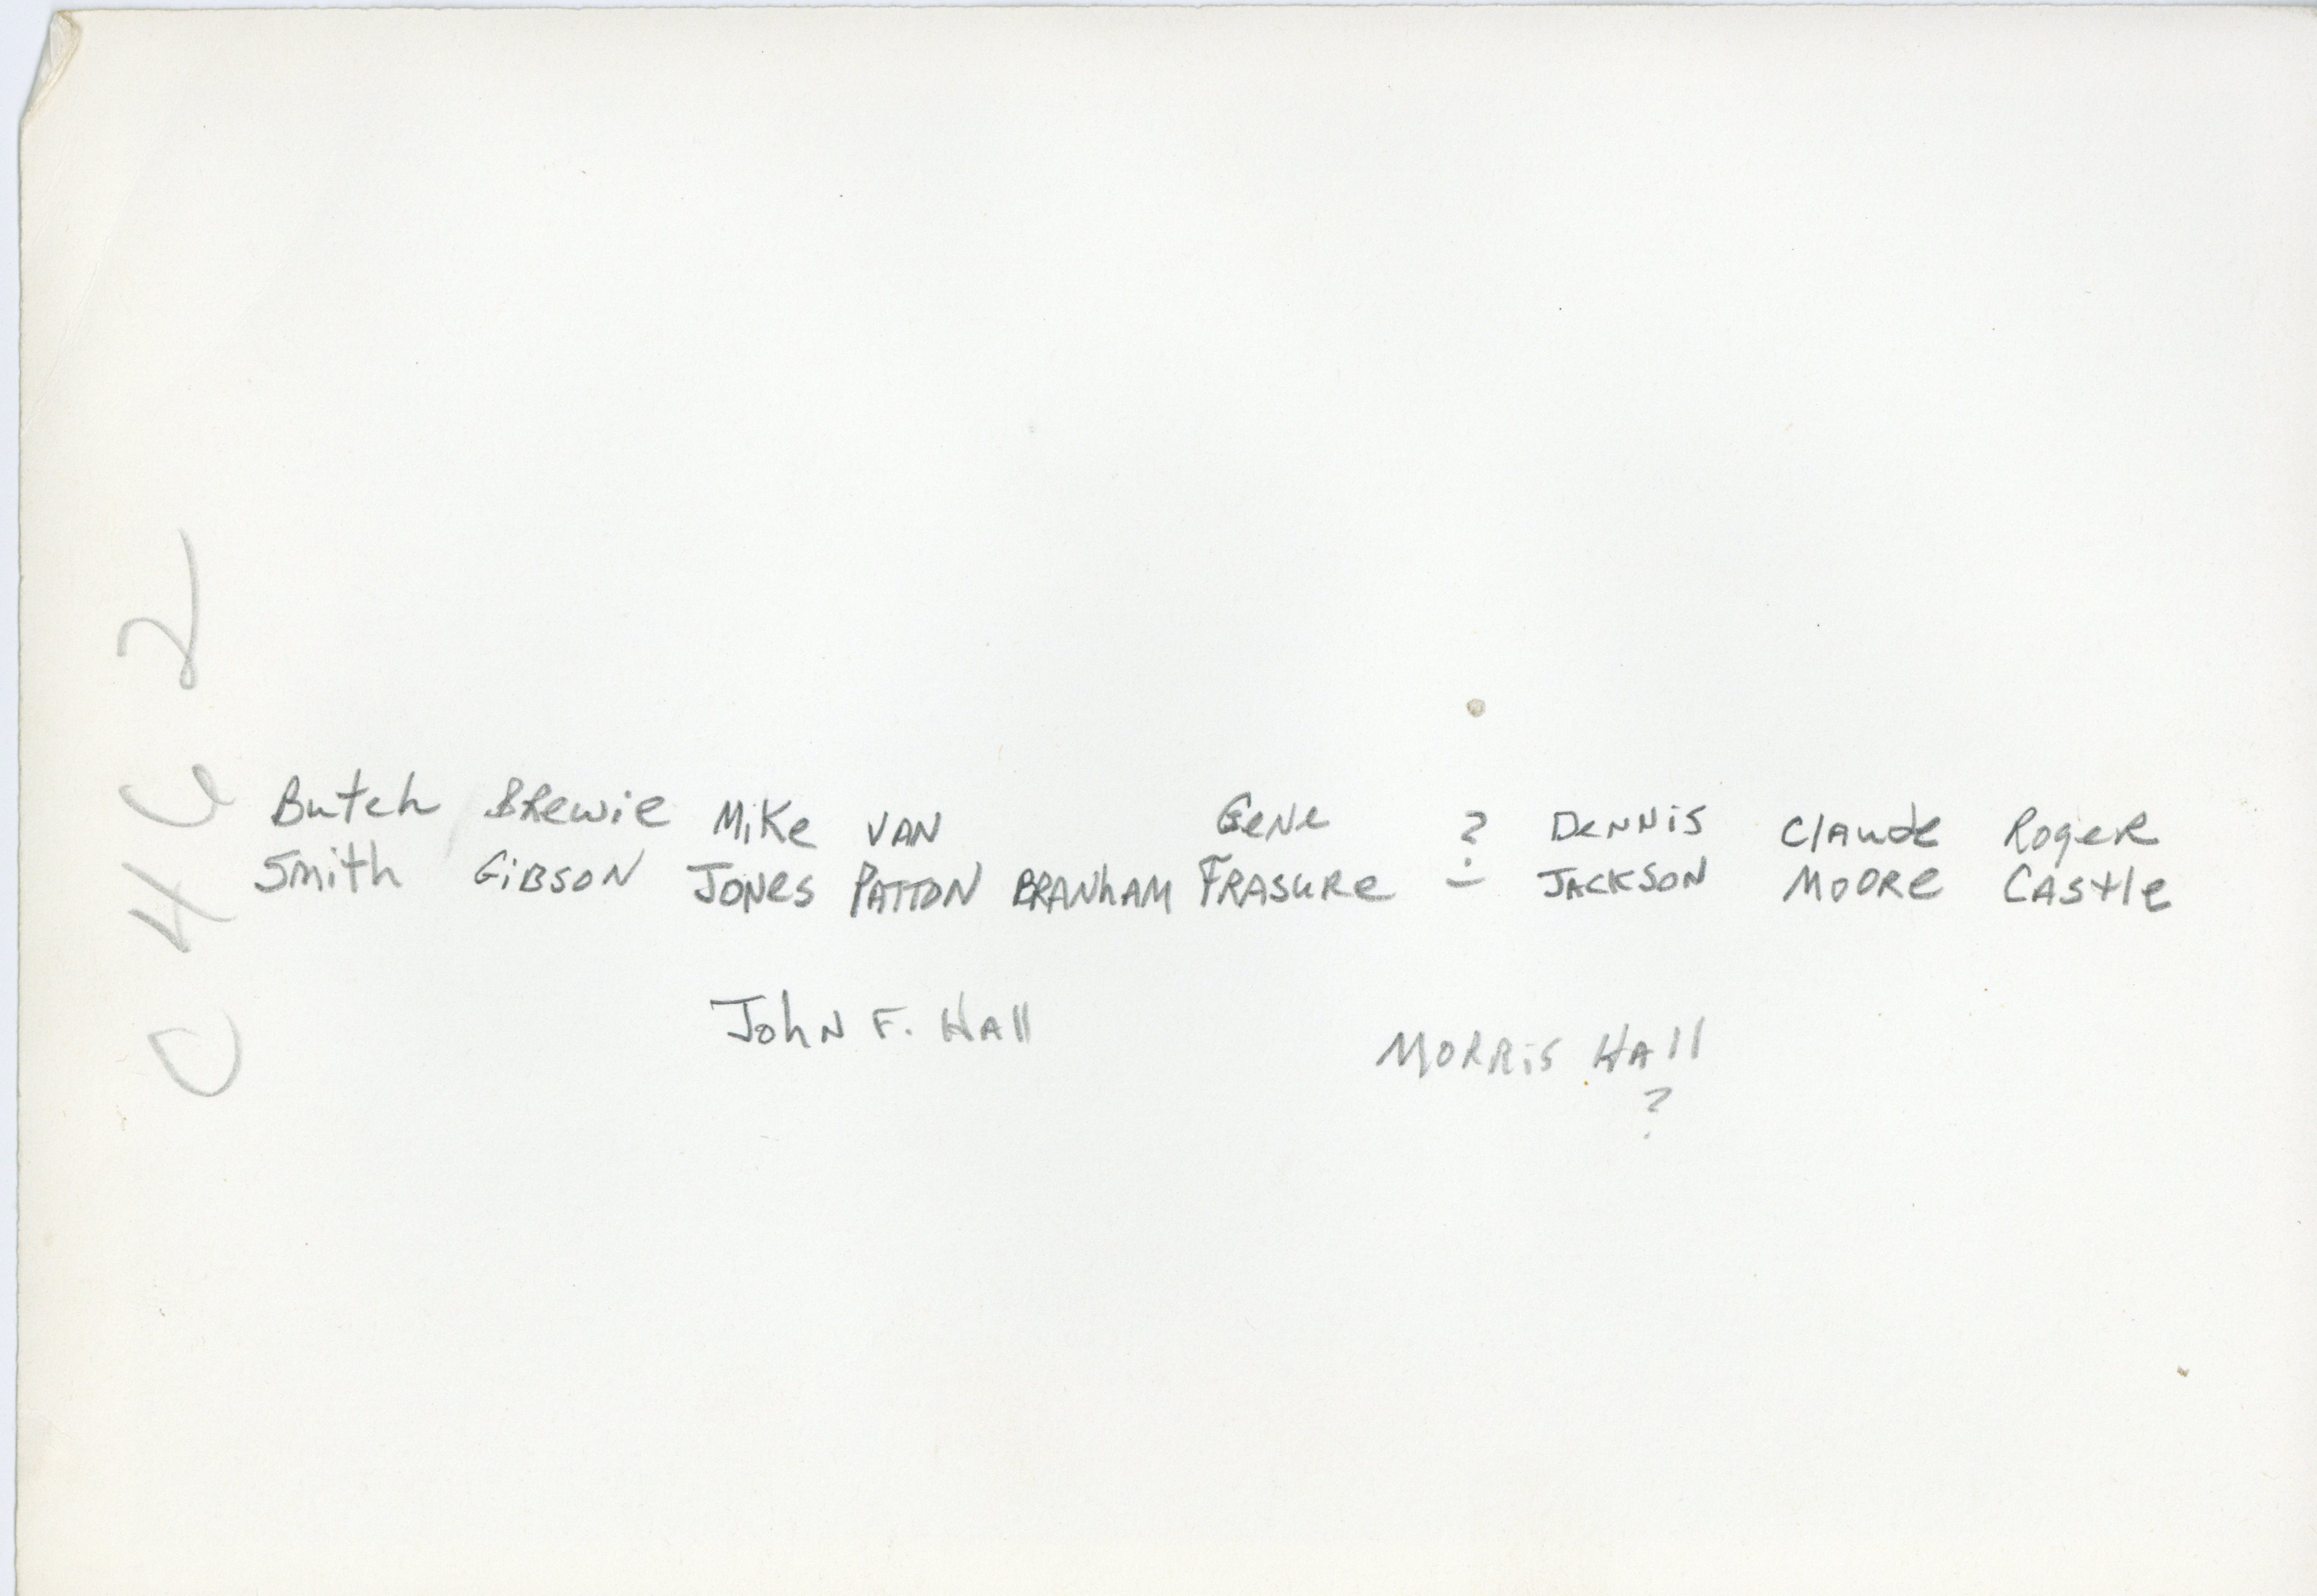 Butch Brewie Mike VAN Gene ? Dennis Claude Roger
Smith GIBSON Jones PATTON BRANHAM FRASURE - JACKSON MOORE Castle
John F. Hall
MORRIS HAll
?
C462